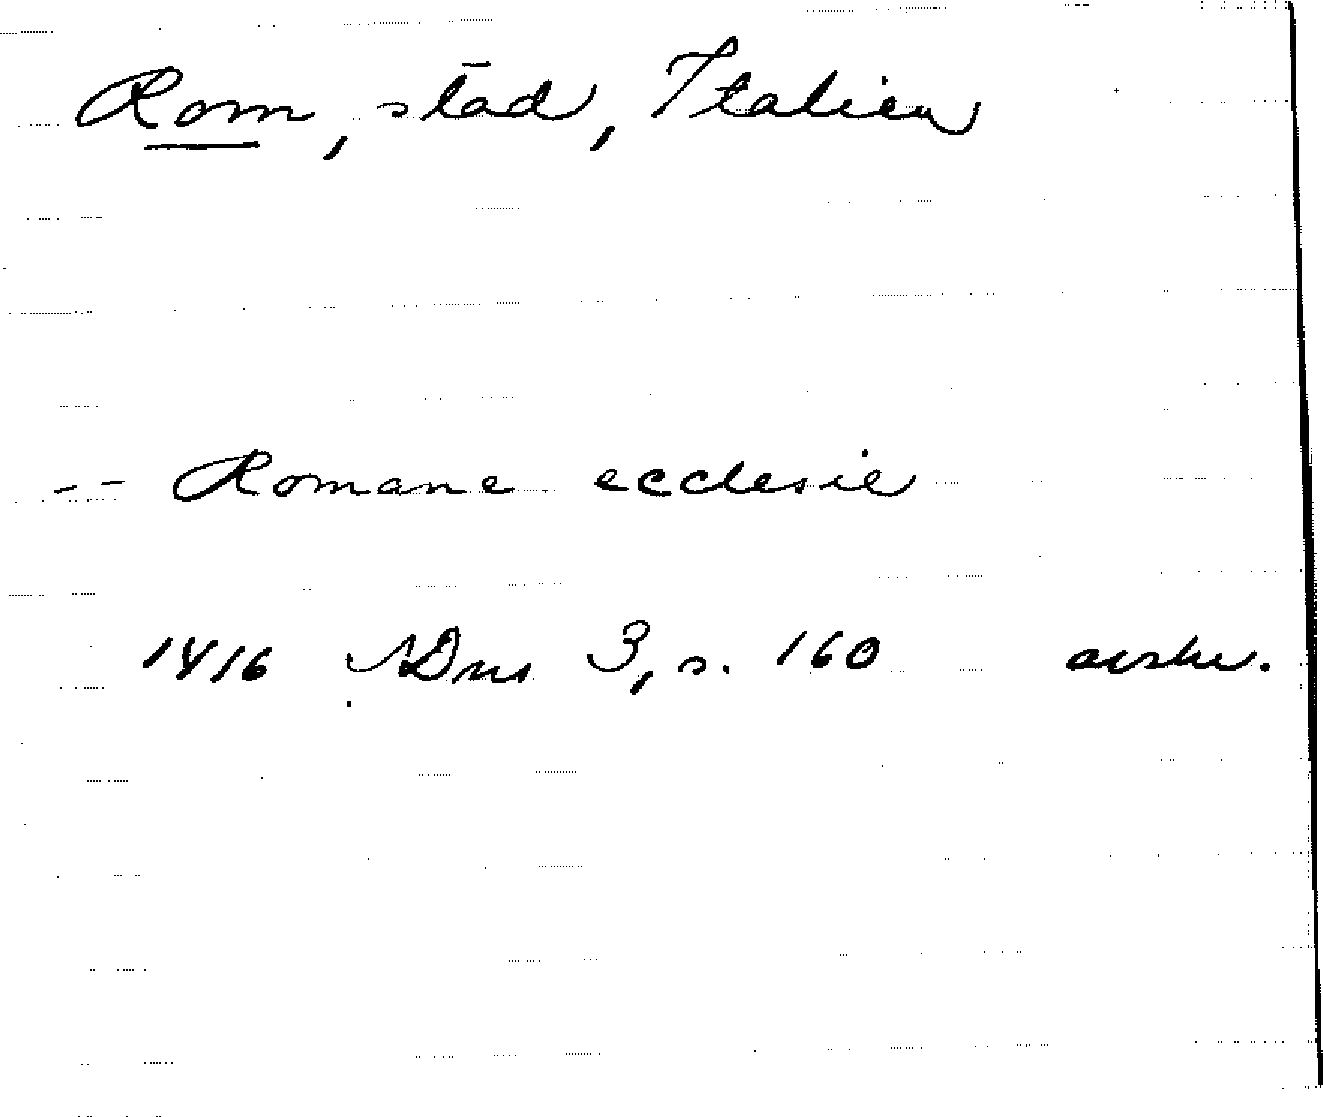 Rom, stad, Italien
-- Romane ecclesie
1416 SDns 3, s. 160 avskr.